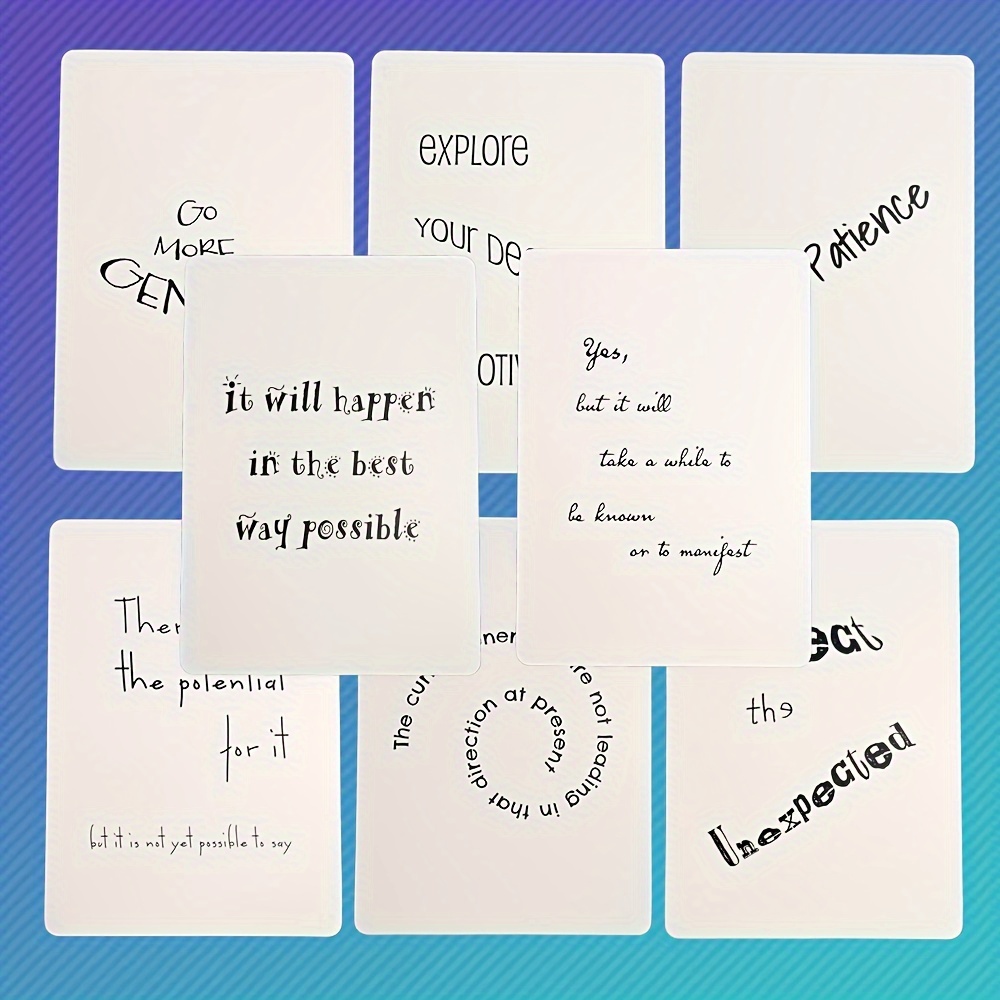 GO
MORE
explore
your
Patience
it will happen
in the best
way possible
Yes,
but it will
take a while to
be known
or to manifest
the potential
for it
but it is not yet possible to say
The
not leading in that direction at present
the
Unexpected